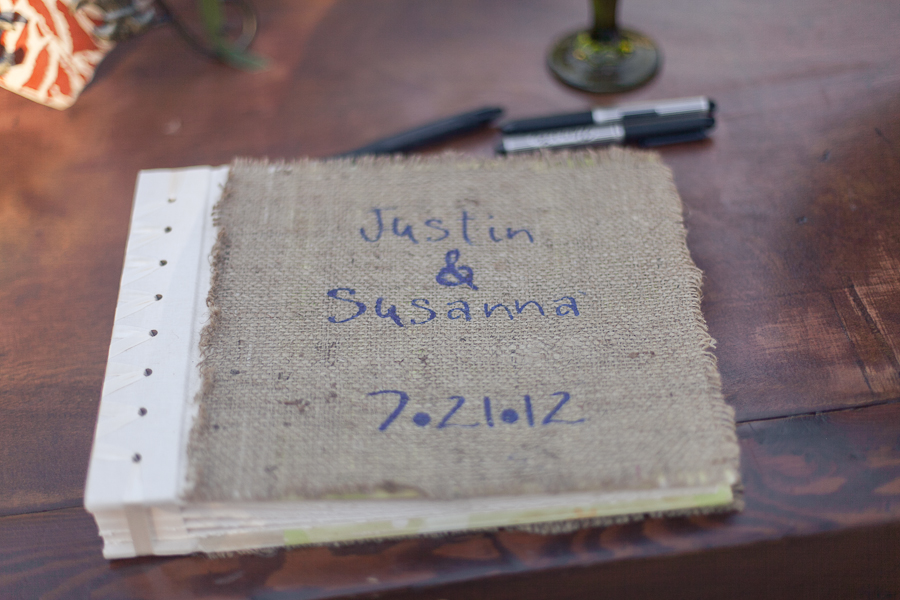 Justin
&
Susanna
7.21.12